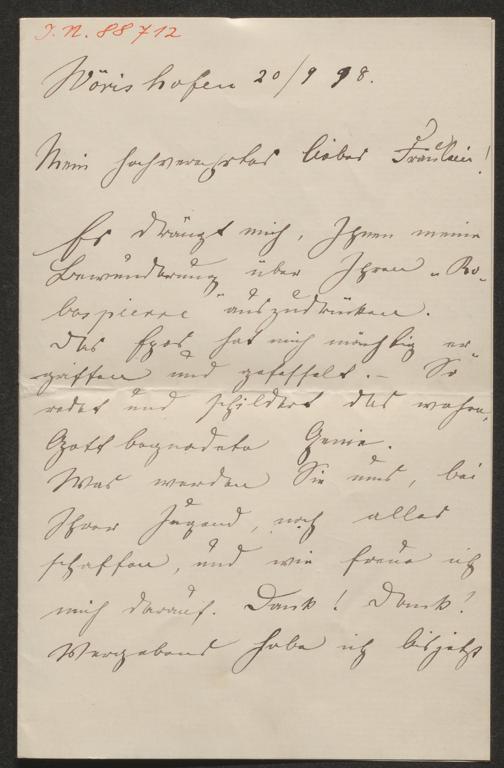 J. N. 88712
Wörishofen 20/9 98.
Mein hochverehrtes liebes Fräulein!
Es drängt mich, Ihnen meine
Bewunderung über Ihren „Ro-
bespierre" auszudrücken.
Das Epos hat mich mächtig er-
griffen und gefesselt. – So
redet und schildert das wahre,
Gott begnadete Genie.
Was werden Sie uns, bei
Ihrer Jugend, noch alles
schaffen, und wie freue ich
mich darauf. Dank! Dank!
Vergebens habe ich bis jetzt